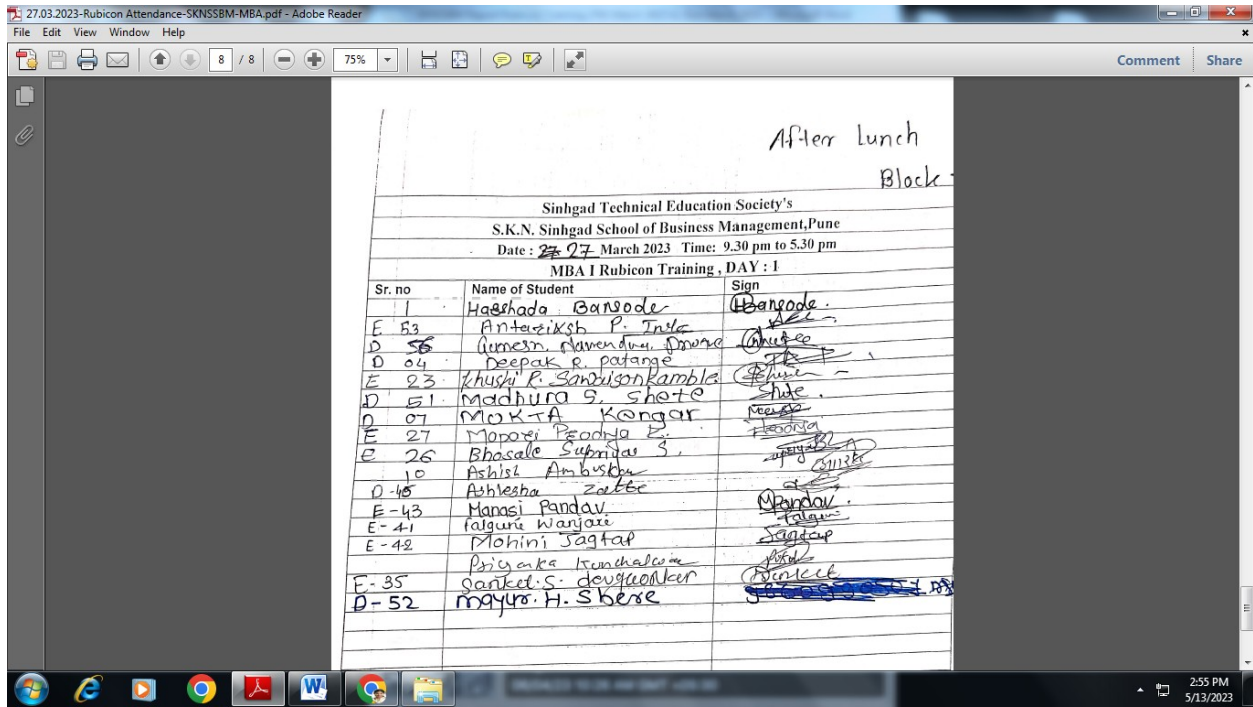 27.03.2023-Rubicon Attendance-SKNSSBM-MBA.pdf - Adobe Reader
File Edit View Window Help
8 / 8 75% Comment Share
After Lunch
Block
Sinhgad Technical Education Society's
S.K.N. Sinhgad School of Business Management,Pune
Date : 27 March 2023 Time: 9.30 pm to 5.30 pm
MBA I Rubicon Training , DAY : 1
Sr. no Name of Student Sign
1 Harshada Bansode HBansode.
E 53 Antariksh P.
D 56
D 04 Deepak R. Patange
E 23 Khushi R.
D 51 Madhura S. Shete Shete.
D 07 MOKTA Kongar
E 27
E 26 Bhosale Supriya S.
10 Ashish Ambuskar
D-45 Ashlesha
E-43 Manasi Pandav MPandav.
E-41 falguni Wanjari Falguni
E-42 Mohini Jagtap Jagtap
Priyanka
E-35 Sanket.S. Sanket
D-52 Mayur. H. Shere
2:55 PM
5/13/2023